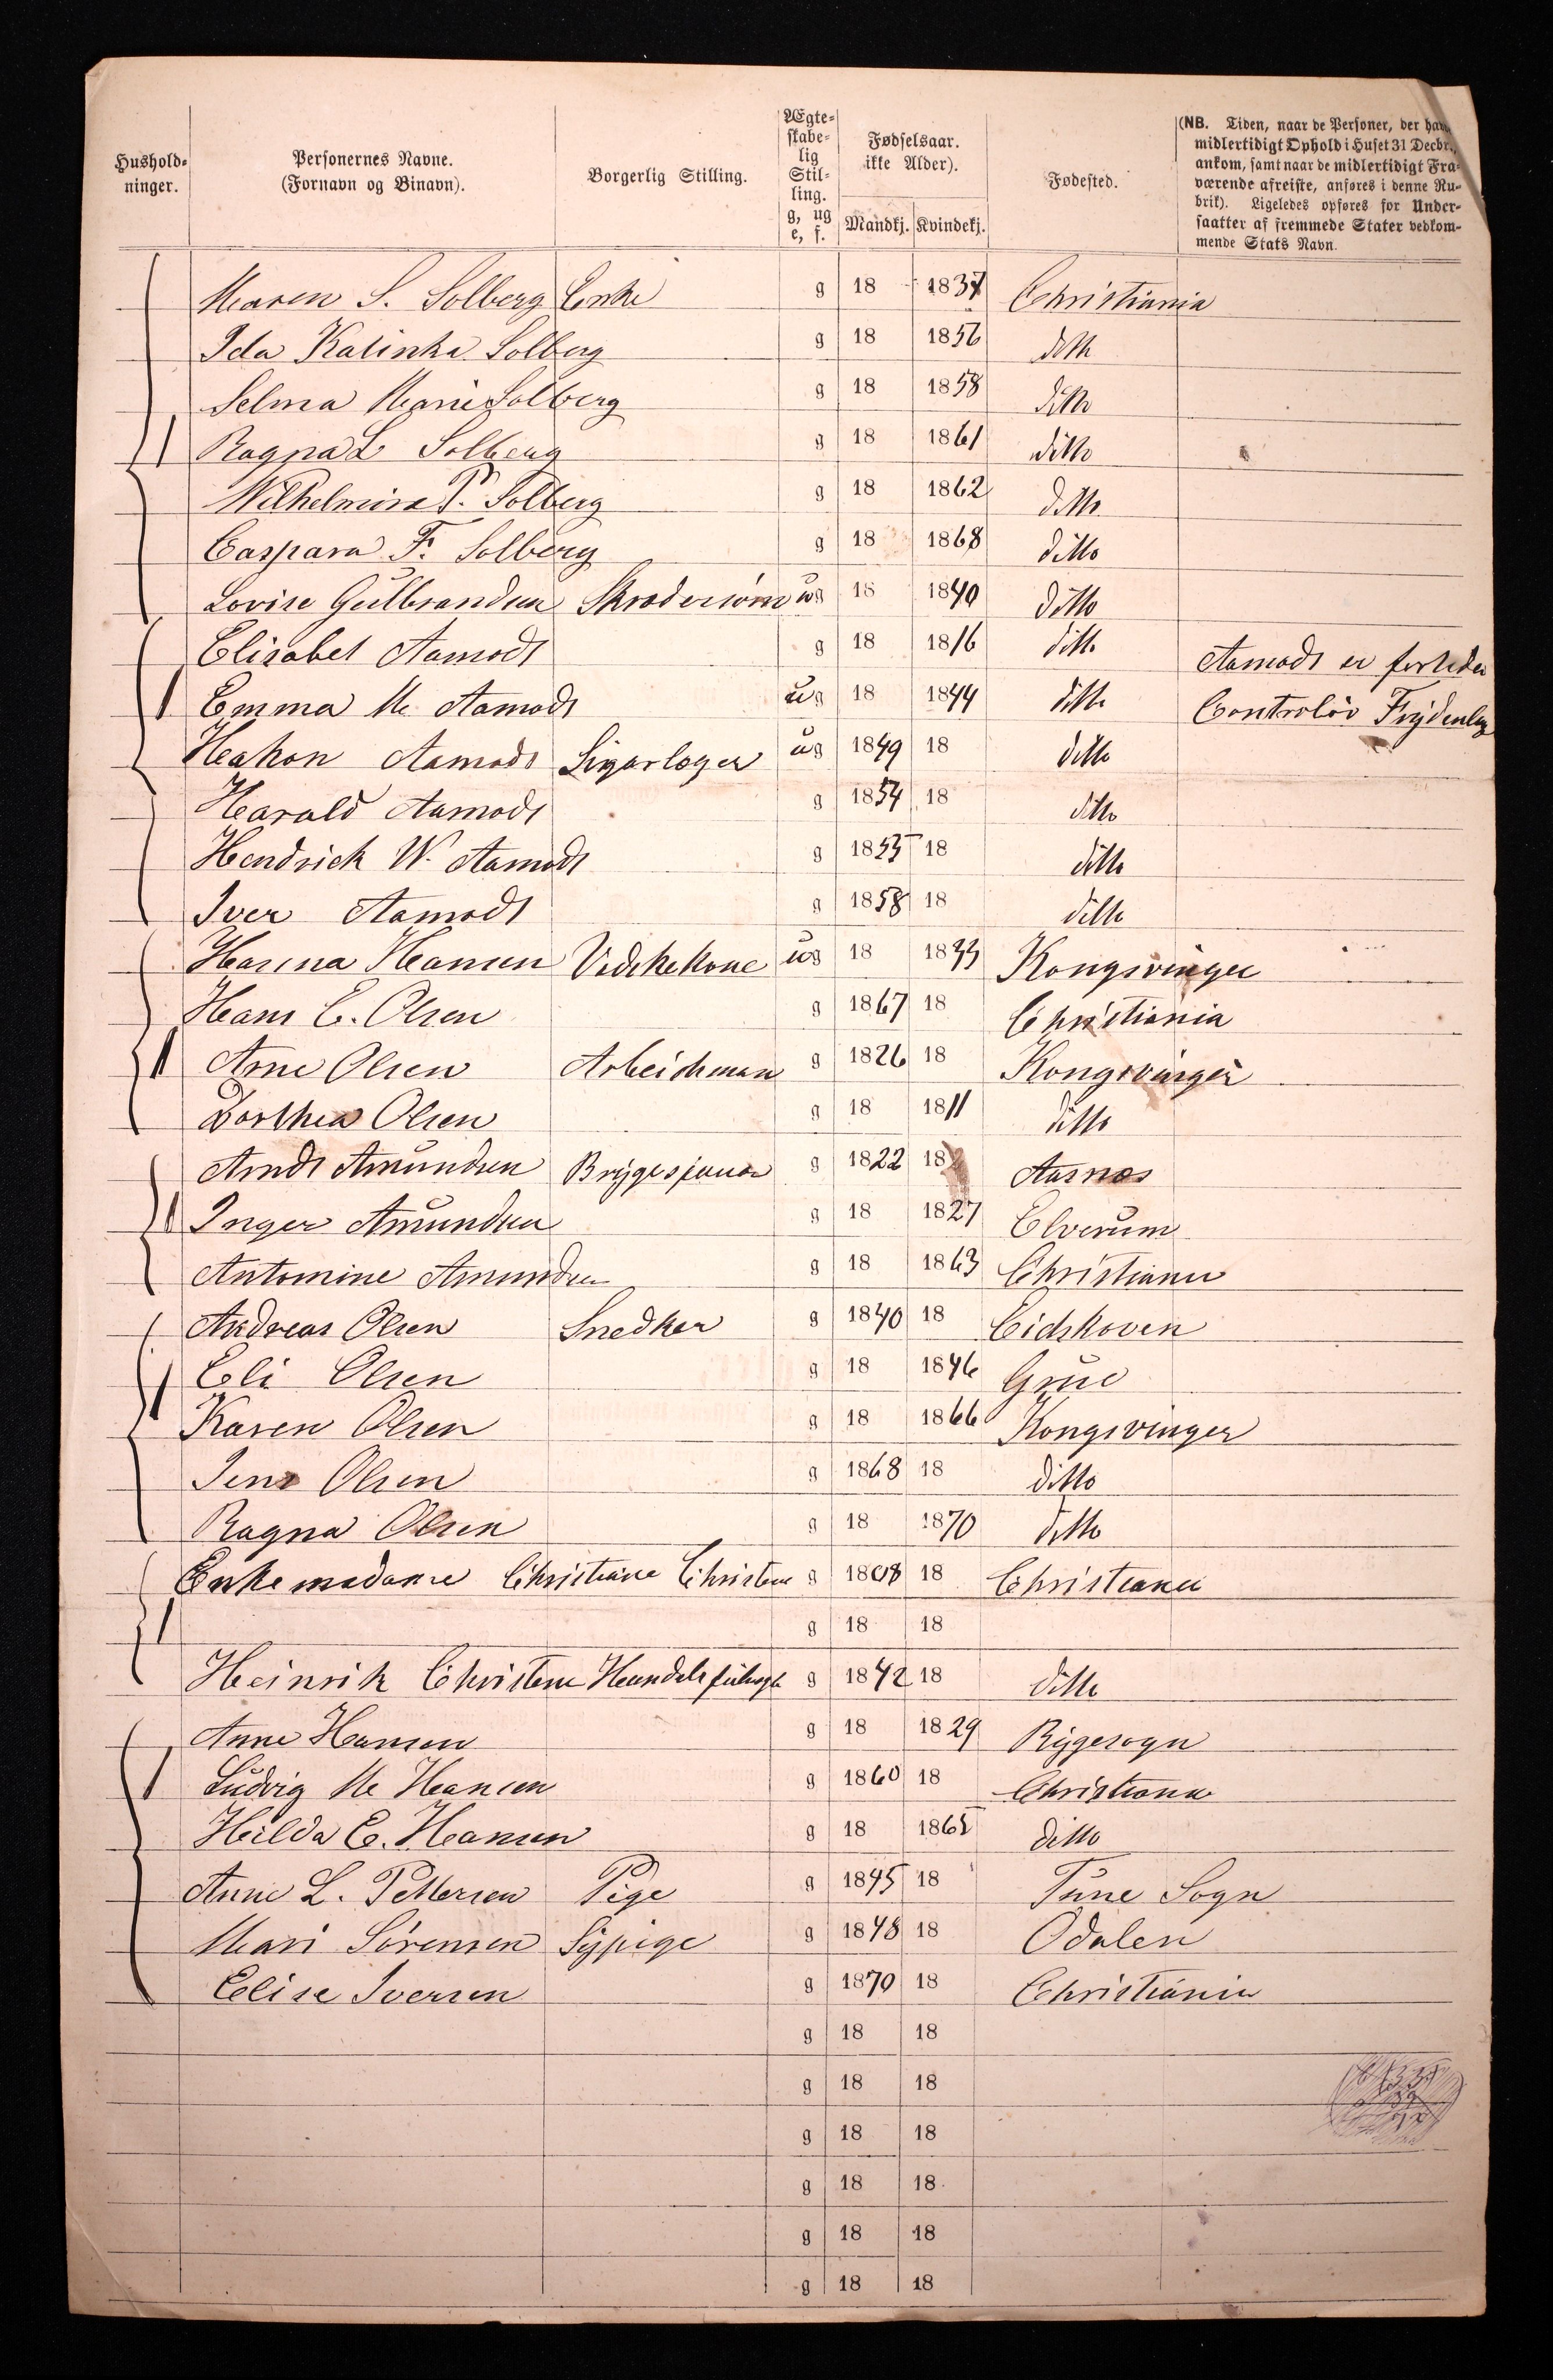 Hushold-
ninger.
Personernes Navne.
(Fornavn og Binavn).
Borgerlig Stilling.
Ægte-
skabe-
lig
Stil-
ling.
g, ug
e, f.
Fødselsaar.
ikke Alder).
Mandkj. Kvindekj.
Fødested.
(NB. Tiden, naar de Personer, der
midlertidigt Ophold i Huset 31 Decbr.,
ankom, samt naar de midlertidigt Fra-
værende afreiste, anføres i denne Ru-
brik). Ligeledes opføres for Under-
saatter af fremmede Stater vedkom-
mende Stats Navn.
Maren S. Solberg Enke g 18 1837 Christiania
Ida Kalinka Solberg g 18 1856 ditto
Selma Marie Solberg g 18 1858 ditto
Ragna L Solberg g 18 1861 ditto
Wilhelmine P. Solberg g 18 1862 ditto
Caspara F. Solberg g 18 1868 ditto
Lovise Gulbrandsen ug 18 1840 ditto
Elisabet Aamodt g 18 1816 ditto Aamodt er
Emma M Aamodt ug 18 1844 ditto Controlör
Hakon Aamodt ug 1849 18 ditto
Harald Aamodt g 1854 18 ditto
Hendrick W. Aamodt g 1855 18 ditto
Iver Aamodt g 1858 18 ditto
Hansen ug 18 1833 Kongsvinger
Hans C. Olsen g 1867 18 Christiania
Arne Olsen Arbeidsman g 1826 18 Kongsvinger
Dorthea Olsen g 18 1811 ditto
Arndt Amundsen Bryggesjauer g 1822 18 Aasnæs
Inger Amundsen g 18 1827 Elverum
Antomine Amundsen g 18 1863 Christiania
Andreas Olsen Snedker g 1840 18 Eidskoven
Eli Olsen g 18 1846 Grue
Karen Olsen g 18 1866 Kongsvinger
Jens Olsen g 1868 18 ditto
Ragna Olsen g 18 1870 ditto
Enkemadame Christiane Christens g 1808 18 Christiania
g 18 18
Heinrik Christens g 1842 18 ditto
Anne Hansen g 18 1829 Rygesogn
Ludvig M Hansen g 1860 18 Christiania
Hilda E. Hansen g 18 1865 ditto
Anne L. Pettersen Pige g 1845 18 Tune Sogn
Mari Sörensen Sypige g 1848 18 Odalen
Elise Iversen g 1870 18 Christiania
g 18 18
g 18 18
g 18 18
g 18 18
g 18 18
g 18 18